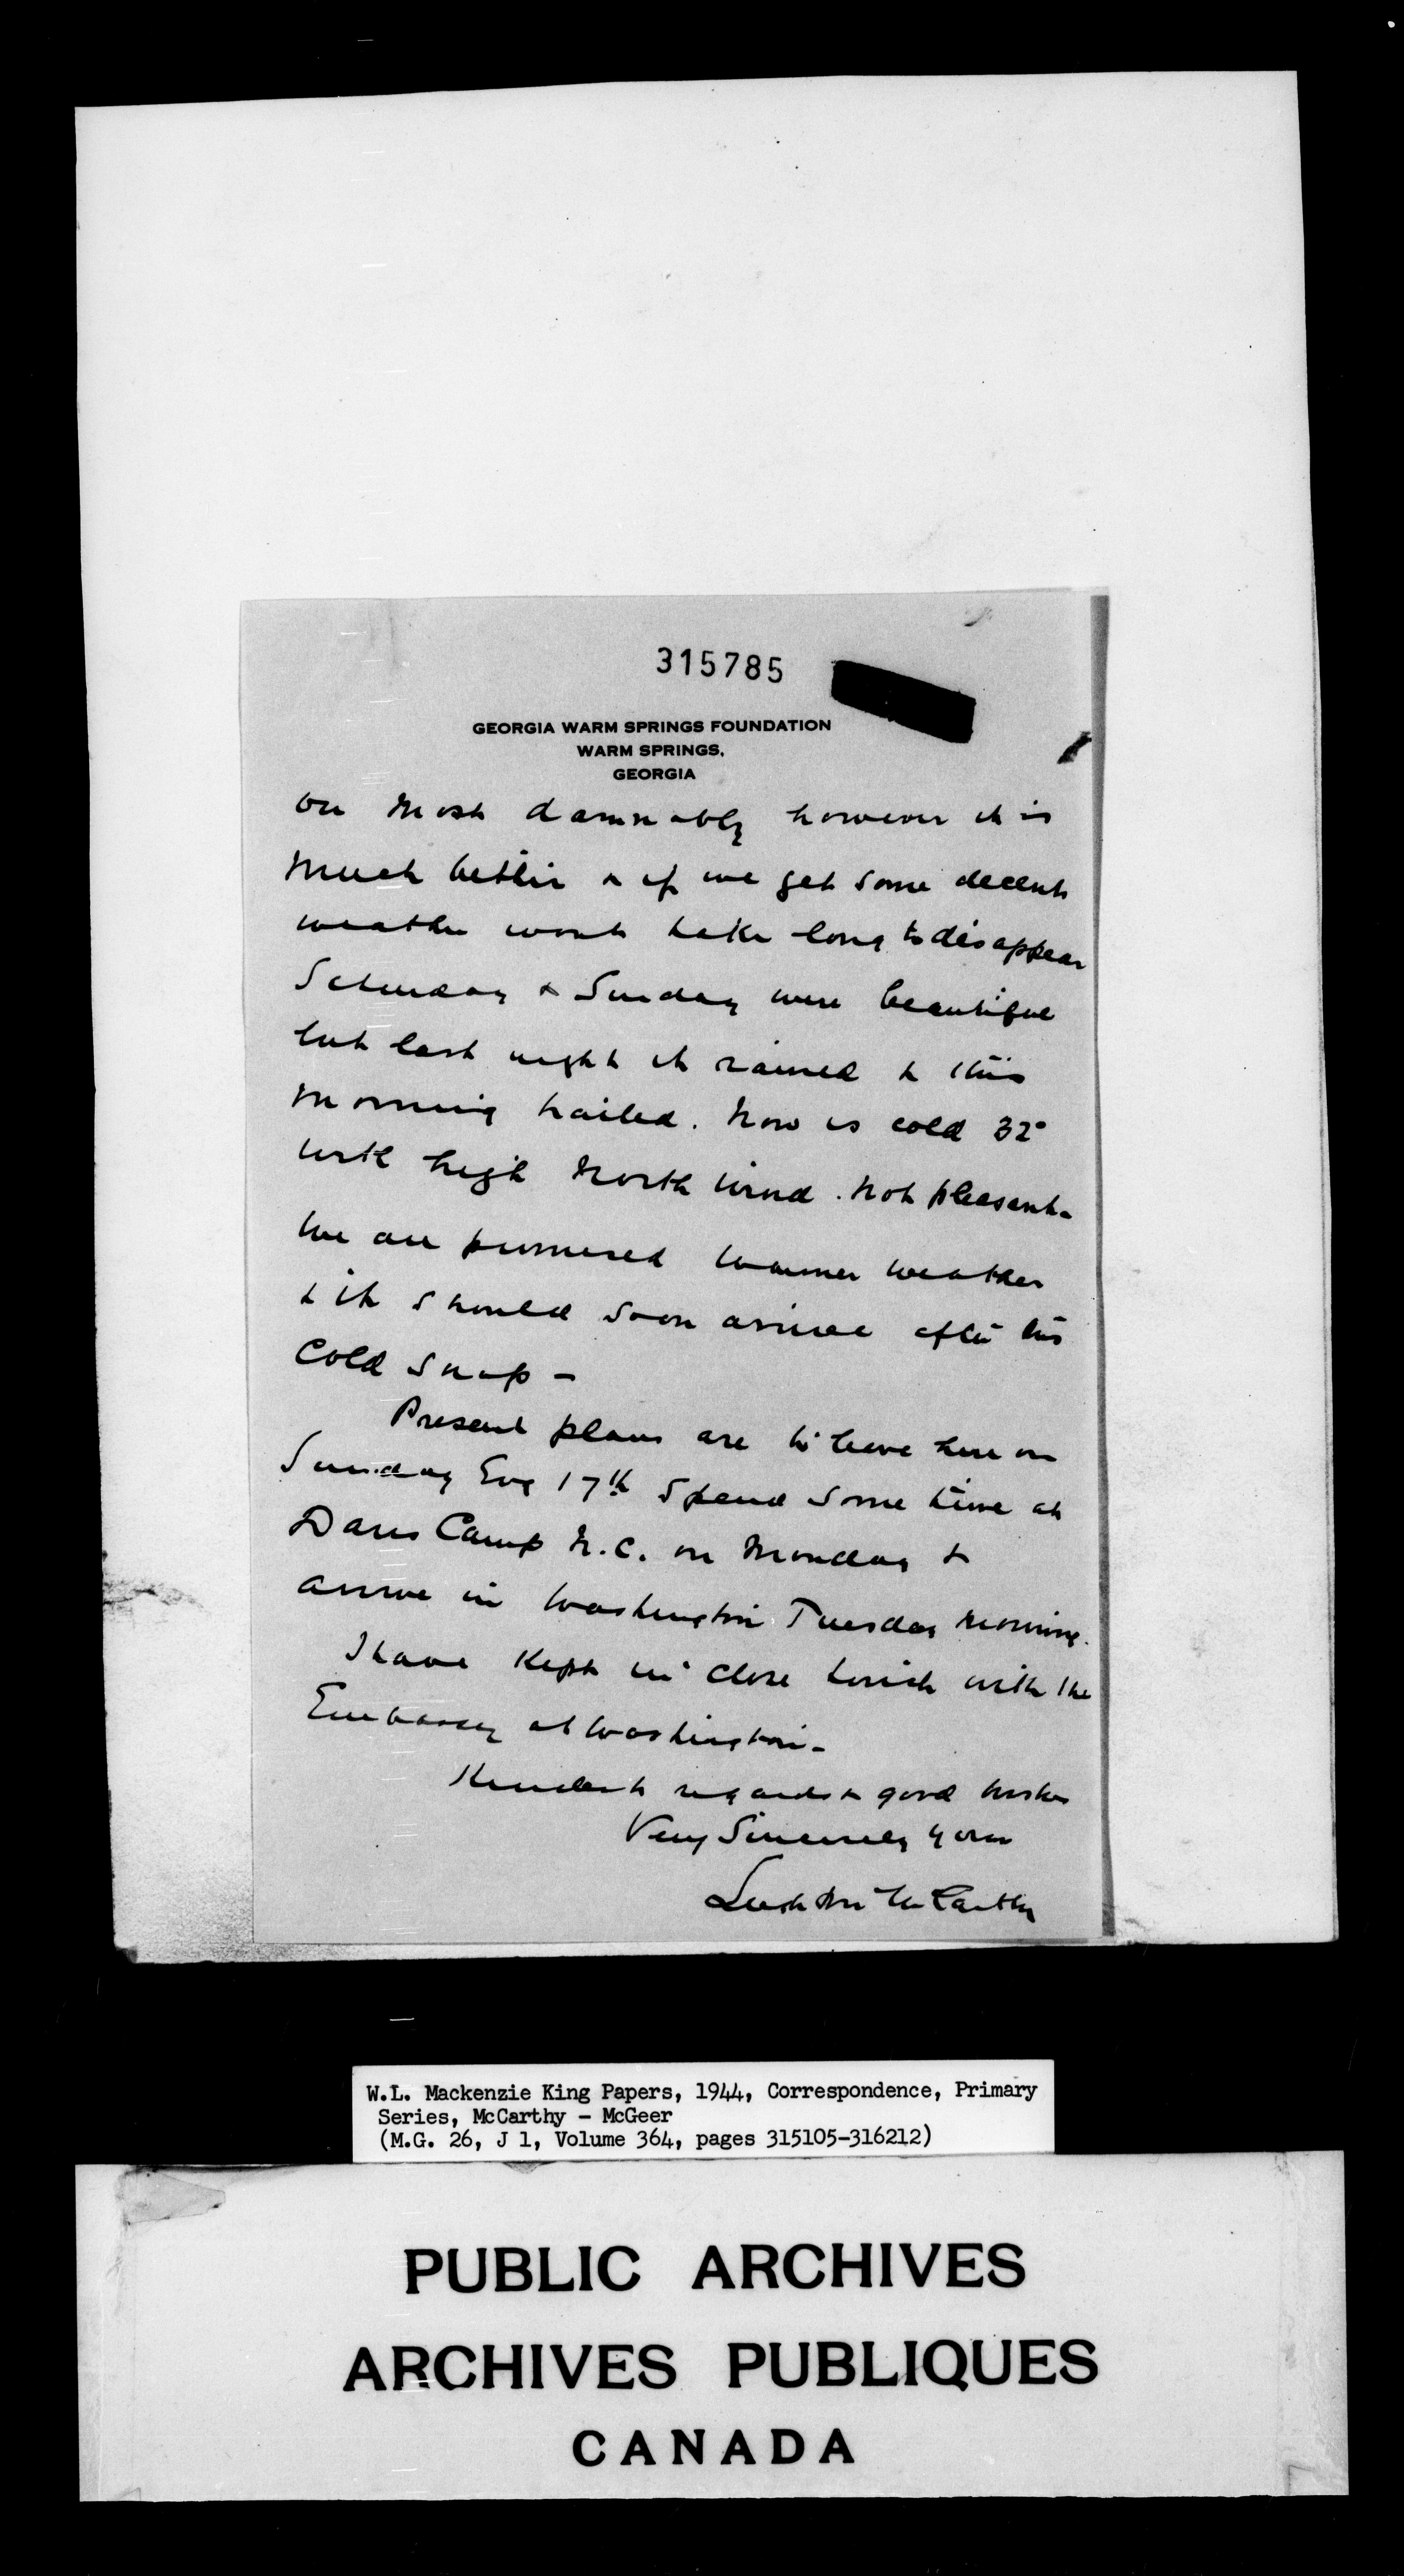 315785
GEORGIA WARM SPRINGS FOUNDATION
WARM SPRINGS,
GEORGIA
on most damnably however it is
much better & if we get some decent
weather wont take long to disappear
Saturday & Sunday were beautiful
but last night it rained & this
morning hailed. Now is cold 32°
with high North wind. Not pleasant.
We are promised warmer weather
& it should soon arrive after this
Cold snap -
Present plans are to leave here on
Sunday Evg 17th spend some time at
Davis Camp N.C. on Monday &
arrive in Washington Tuesday morning.
I have kept in close touch with the
Embassy at Washington -
Kindest regards & good wishes
Very Sincerely yours
Leighton McCarthy
W.L. Mackenzie King Papers, 1944, Correspondence, Primary
Series, McCarthy - McGeer
(M.G. 26, J 1, Volume 364, pages 315105-316212)
PUBLIC ARCHIVES
ARCHIVES PUBLIQUES
CANADA